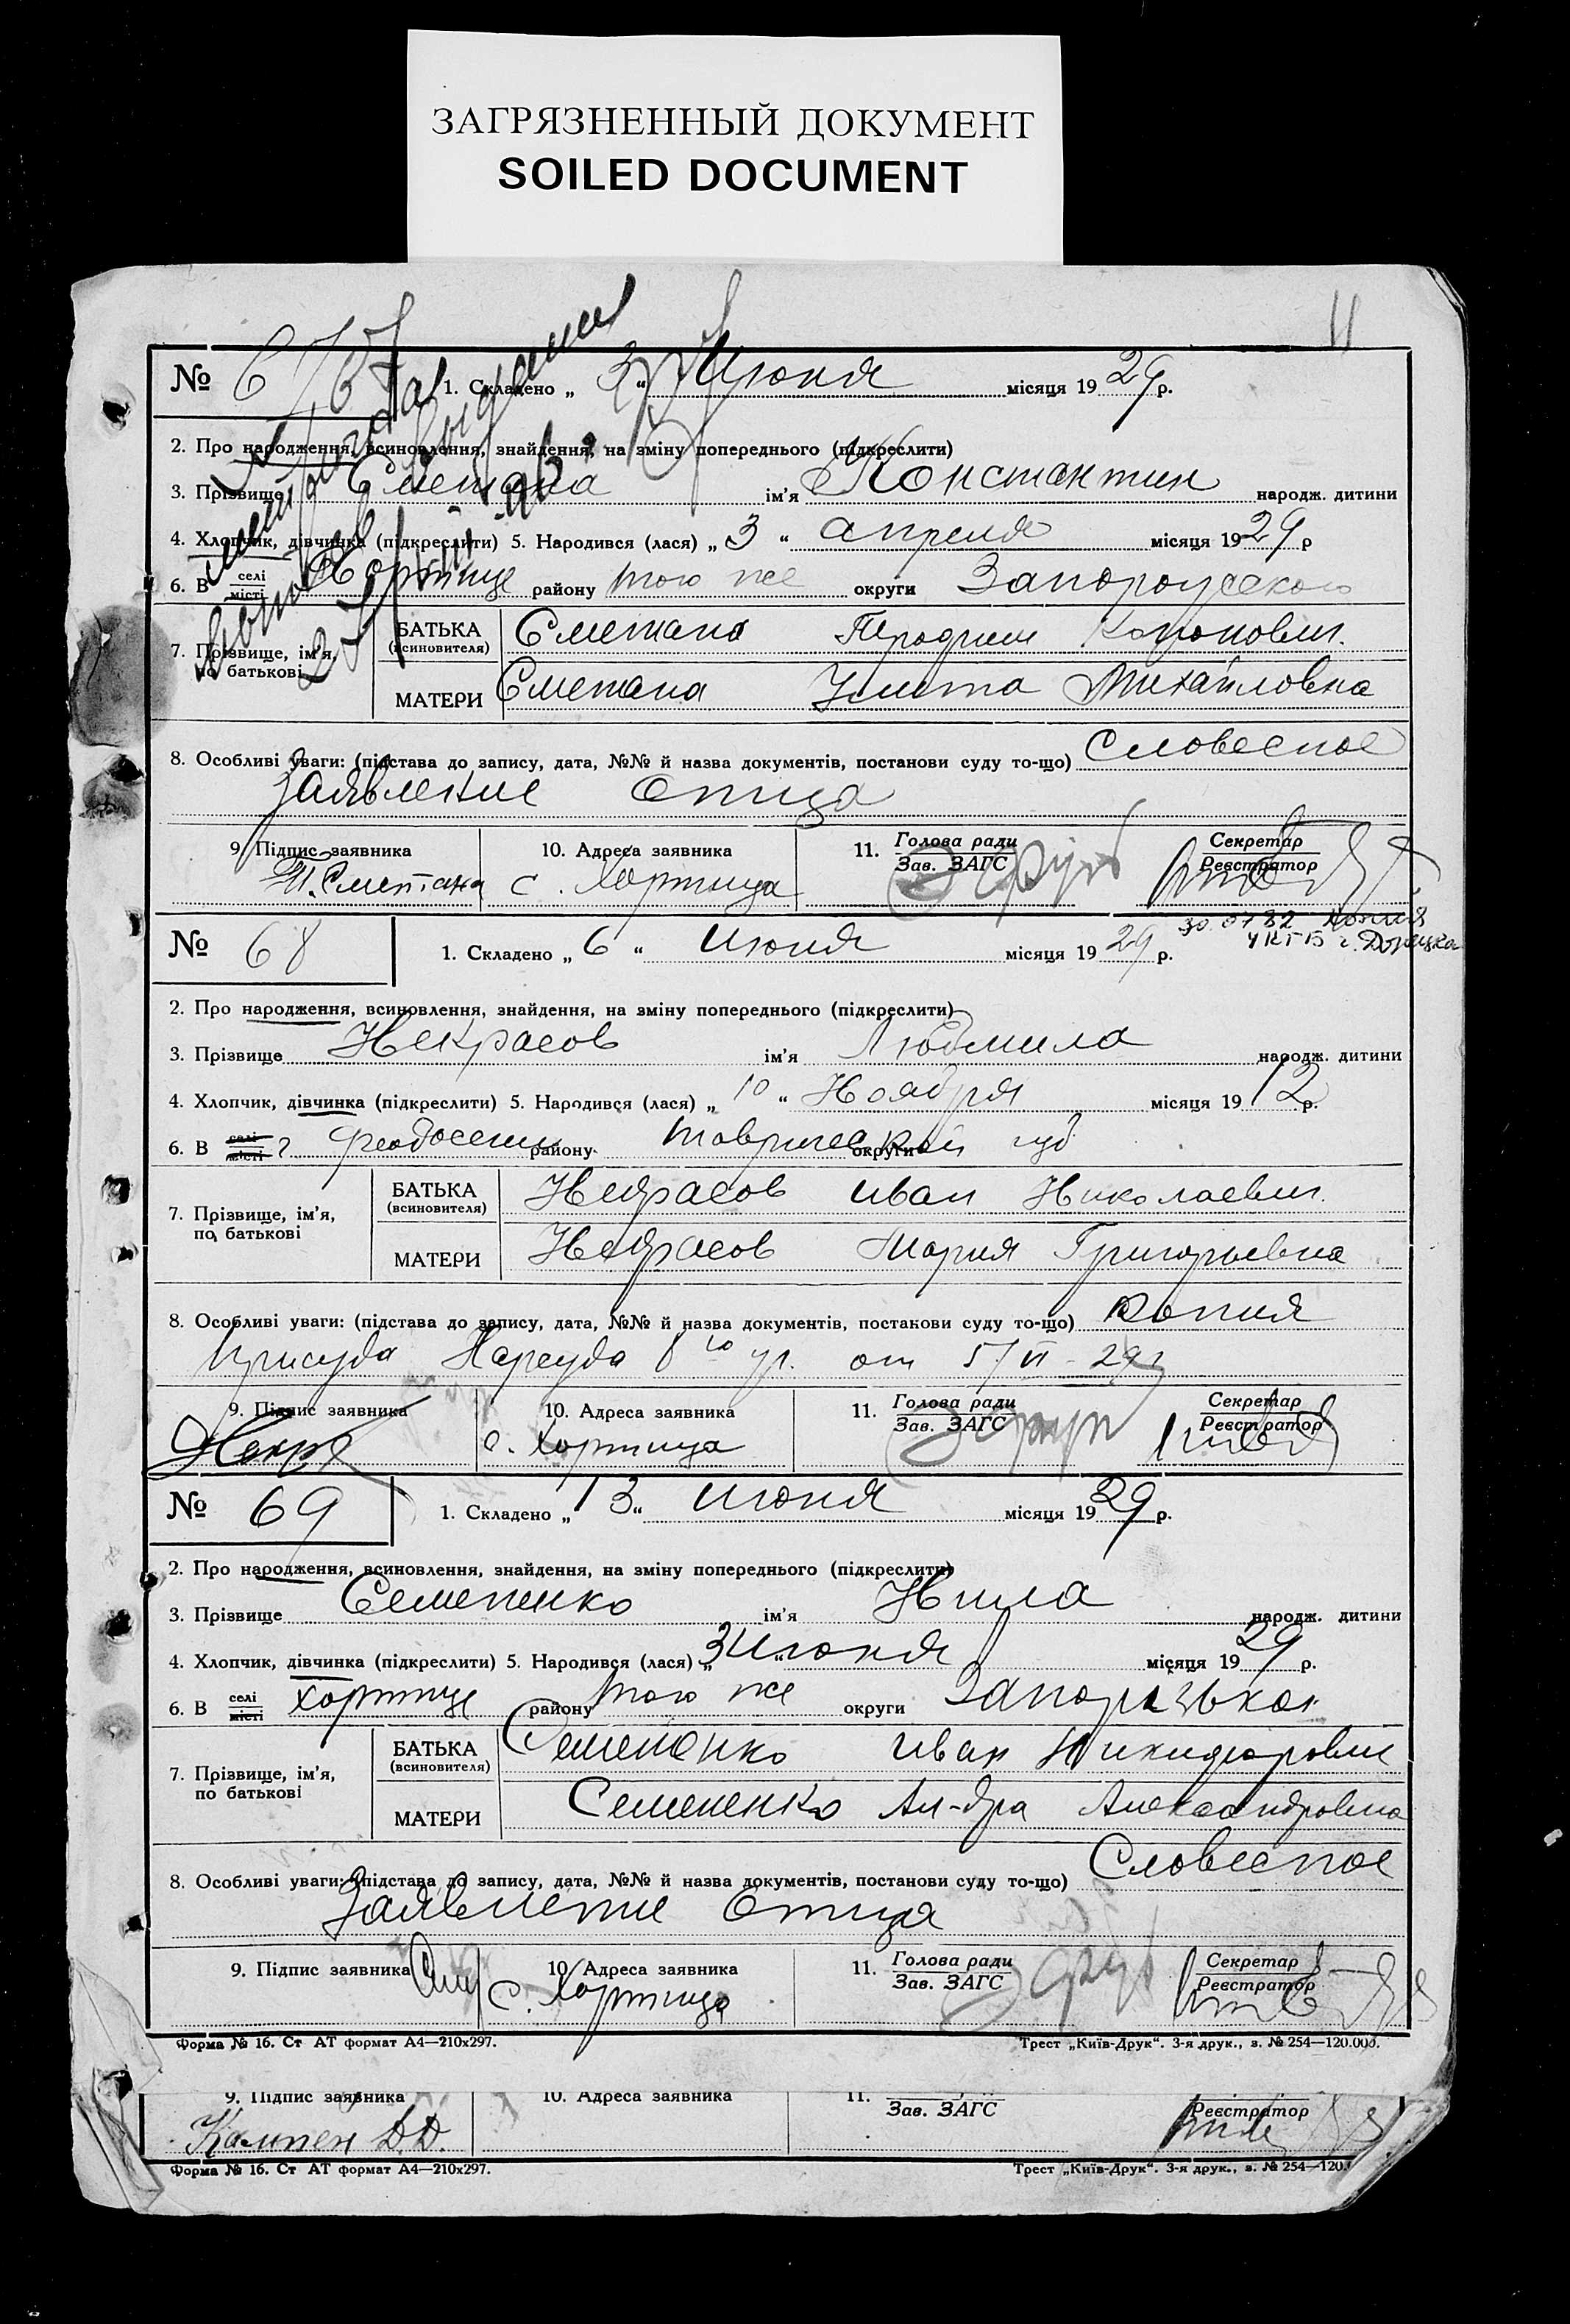 ЗАГРЯЗНЕННЫЙ ДОКУМЕНТ
SOILED DOCUMENT
11
№ 67 1. Складено „ 3 “ Июня місяця 1929 р.
2. Про народження, всиновлення, знайдення, на зміну попереднього (підкреслити)
3. Прізвище Сметана ім'я Константин народж. дитини
4. Хлопчик, дівчинка (підкреслити) 5. Народився (лася) „ 3 “ апреля місяця 1929 р
6. В селі місті Хортице району того же округи
7. Прізвище, ім'я, по батькові
БАТЬКА (всиновителя) Сметана
МАТЕРИ Сметана Михайловна
8. Особливі уваги: (підстава до запису, дата, №№ й назва документів, постанови суду то-що) Словесное
заявление отца
9. Підпис заявника 10. Адреса заявника 11. Голова ради Зав. ЗАГС Секретар Реєстратор
П. Сметана с. Хортица
30 07 82 копия
УКГБ г. Донецка
№ 68 1. Складено „ 6 “ Июня місяця 1929 р.
2. Про народження, всиновлення, знайдення, на зміну попереднього (підкреслити)
3. Прізвище Некрасов ім'я Людмила народж. дитини
4. Хлопчик, дівчинка (підкреслити) 5. Народився (лася) „ 10 “ Ноября місяця 1912 р.
6. В селі місті г. Феодосии району Таврической округи губ
7. Прізвище, ім'я, по батькові
БАТЬКА (всиновителя) Некрасов Иван Николаевич
МАТЕРИ Некрасов Мария Григорьевна
8. Особливі уваги: (підстава до запису, дата, №№ й назва документів, постанови суду то-що) Копия
присуда Нарсуда 8го уч. от 5/VI-29 г
9. Підпис заявника 10. Адреса заявника 11. Голова ради Зав. ЗАГС Секретар Реєстратор
Некра с. Хортица
№ 69 1. Складено „ 13 “ июня місяця 1929 р.
2. Про народження, всиновлення, знайдення, на зміну попереднього (підкреслити)
3. Прізвище Семененко ім'я Нила народж. дитини
4. Хлопчик, дівчинка (підкреслити) 5. Народився (лася) „ 3 “ Июня місяця 1929 р.
6. В селі місті Хортице району того же округи
7. Прізвище, ім'я, по батькові
БАТЬКА (всиновителя) Семененко Иван
МАТЕРИ Семененко Ал-дра Александровна
8. Особливі уваги: (підстава до запису, дата, №№ й назва документів, постанови суду то-що) Словесное
заявление отца
9. Підпис заявника 10. Адреса заявника 11. Голова ради Зав. ЗАГС Секретар Реєстратор
с. Хортица
Форма № 16. Ст АТ формат А4—210х297. Трест „Київ-Друк“. 3-я друк., з. № 254—120.000.
9. Підпис заявника 10. Адреса заявника 11. Зав. ЗАГС Реєстратор
Кампен Д.Д.
Форма № 16. Ст АТ формат А4—210х297. Трест „Київ-Друк“. 3-я друк., з. № 254—120.